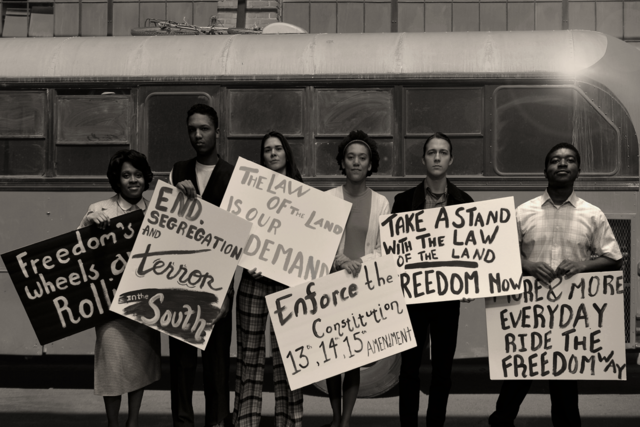 Freedom's
Wheels
Rolli
END.
SEGREGATION
AND
terror
in the
South
THE LAW
OF THE LAND
IS OUR
DEMAND
Enforce the
Constitution
13th, 14th, 15th AMENDMENT
TAKE A STAND
WITH THE LAW
OF THE LAND
FREEDOM NOW
MORE & MORE
EVERYDAY
RIDE THE
FREEDOM WAY